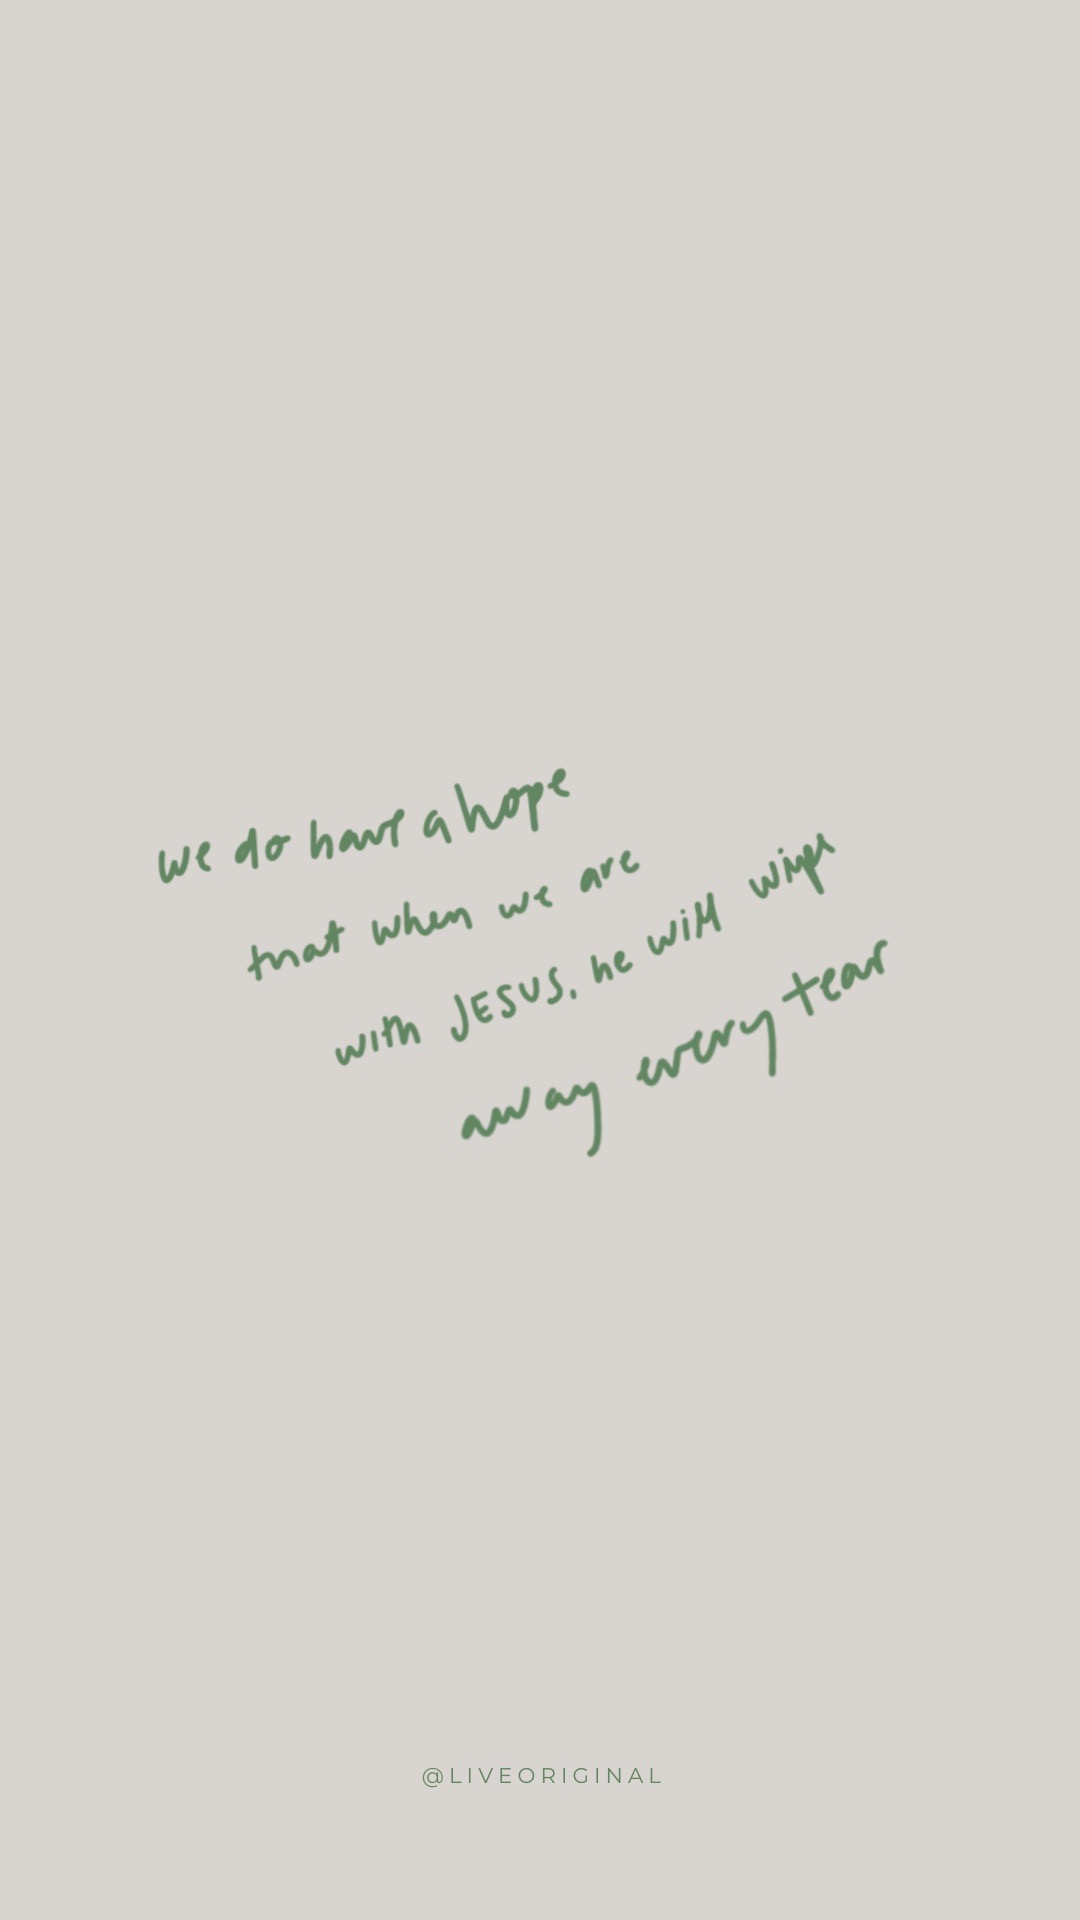 we do have a hope
that when we are
with JESUS, he will wipe
away every tear
@LIVEORIGINAL